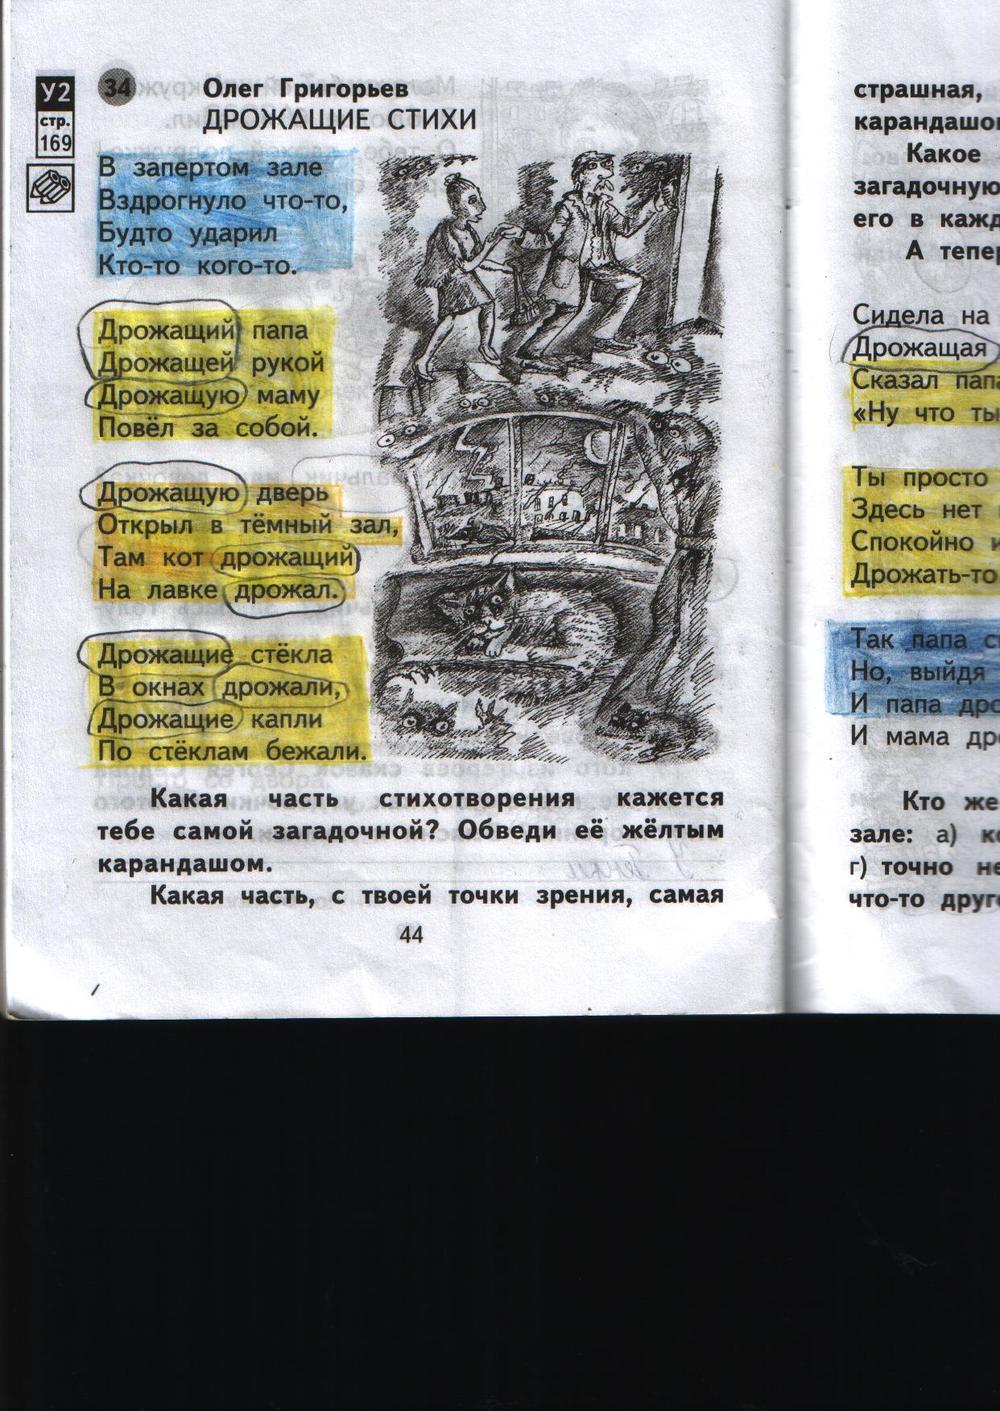 У2
стр.
169
34
Олег Григорьев
ДРОЖАЩИЕ СТИХИ
В запертом зале
Вздрогнуло что-то,
Будто ударил
Кто-то кого-то.
Дрожащий папа
Дрожащей рукой
Дрожащую маму
Повёл за собой.
Дрожащую дверь
Открыл в тёмный зал,
Там кот дрожащий
На лавке дрожал.
Дрожащие стёкла
В окнах дрожали,
Дрожащие капли
По стёклам бежали.
Какая часть стихотворения кажется
тебе самой загадочной? Обведи её жёлтым
карандашом.
Какая часть, с твоей точки зрения, самая
44
страшная,
карандашом
Какое
загадочную
его в кажд
А тепер
Сидела на
Дрожащая
Сказал папа
«Ну что ты
Ты просто
Здесь нет
Спокойно
Дрожать-то
Так папа
Но, выйдя
И папа дро
И мама дро
Кто же
зале: а)
г) точно не
что-то друго